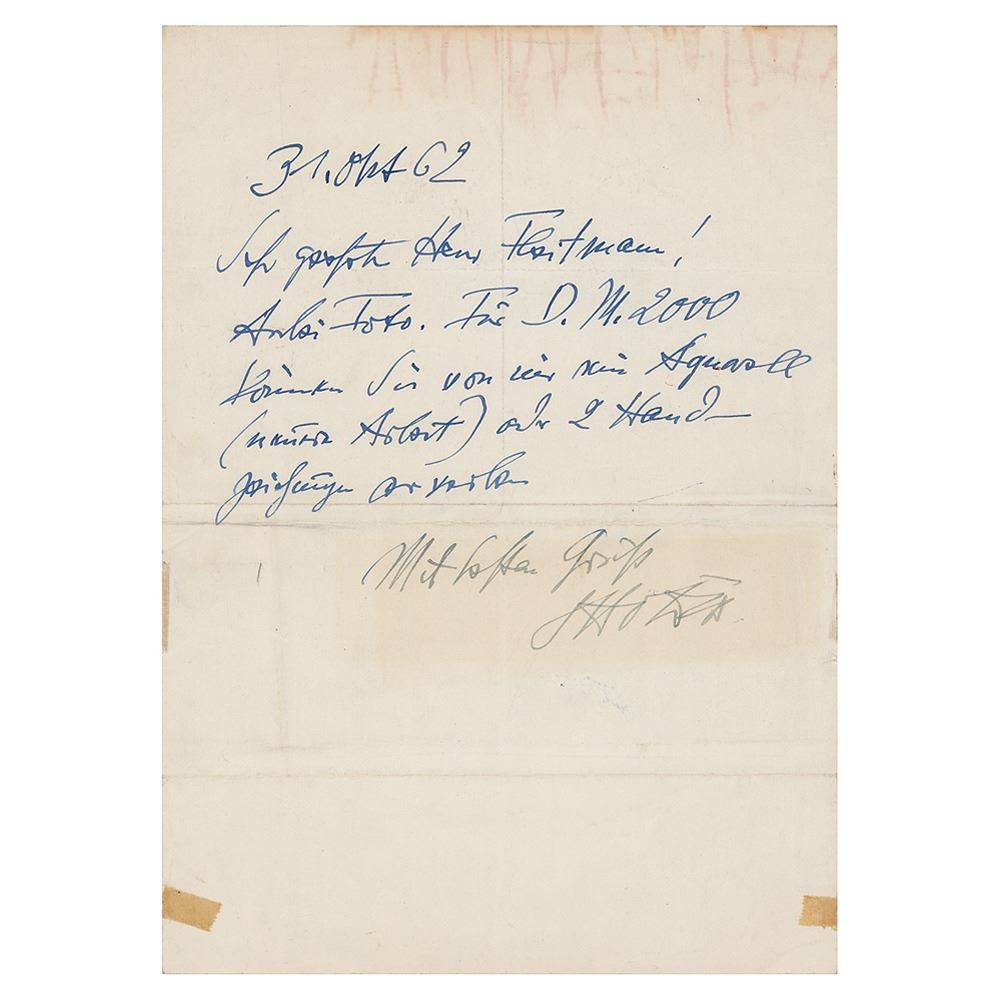 31. Okt 62
Sehr geehrter Herr Fleitmann!
Anbei Foto. Für D. M. 2000
können Sie von mir ein Aquarell
(neuere Arbeit) oder 2 Hand-
zeichnungen erwerben
Mit besten Gruß